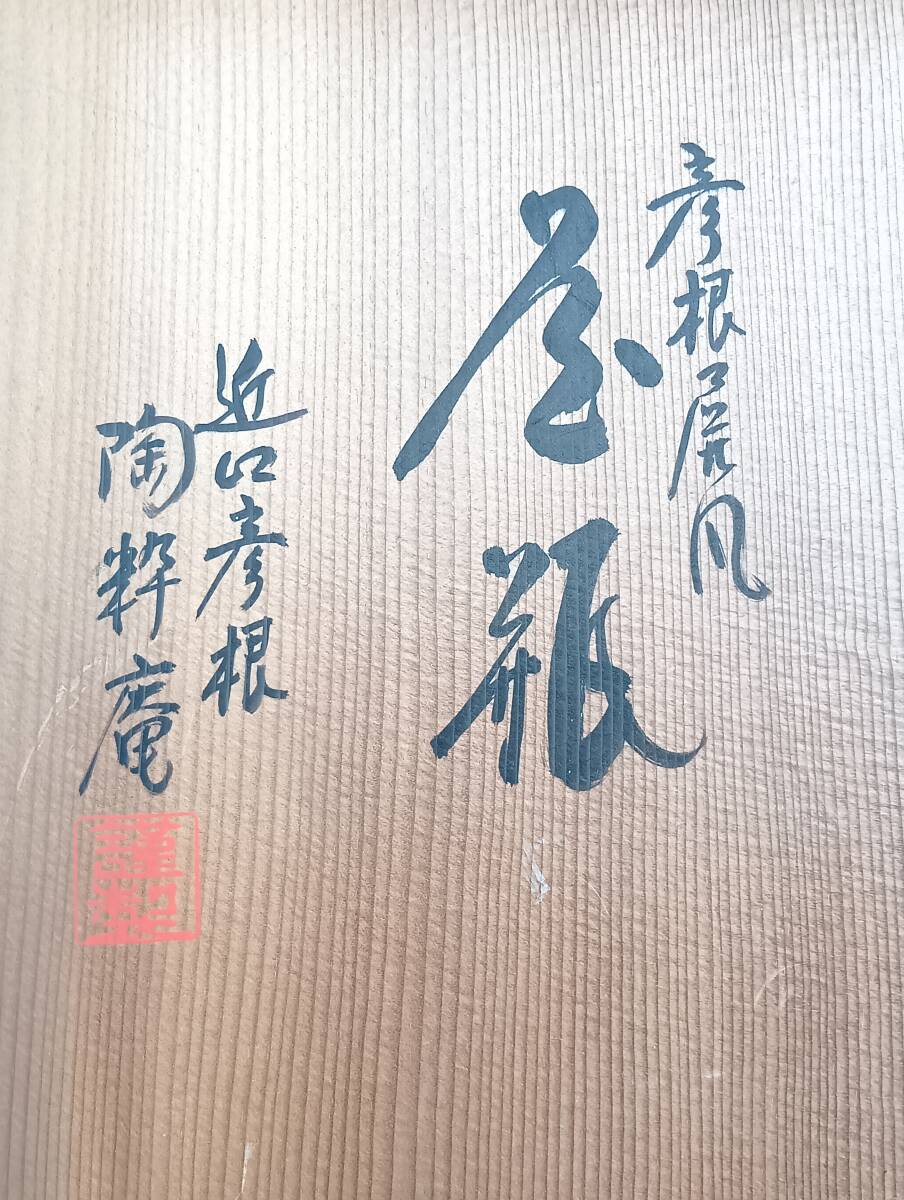 彦根屏風
花瓶
近江彦根
陶粋庵
謹製